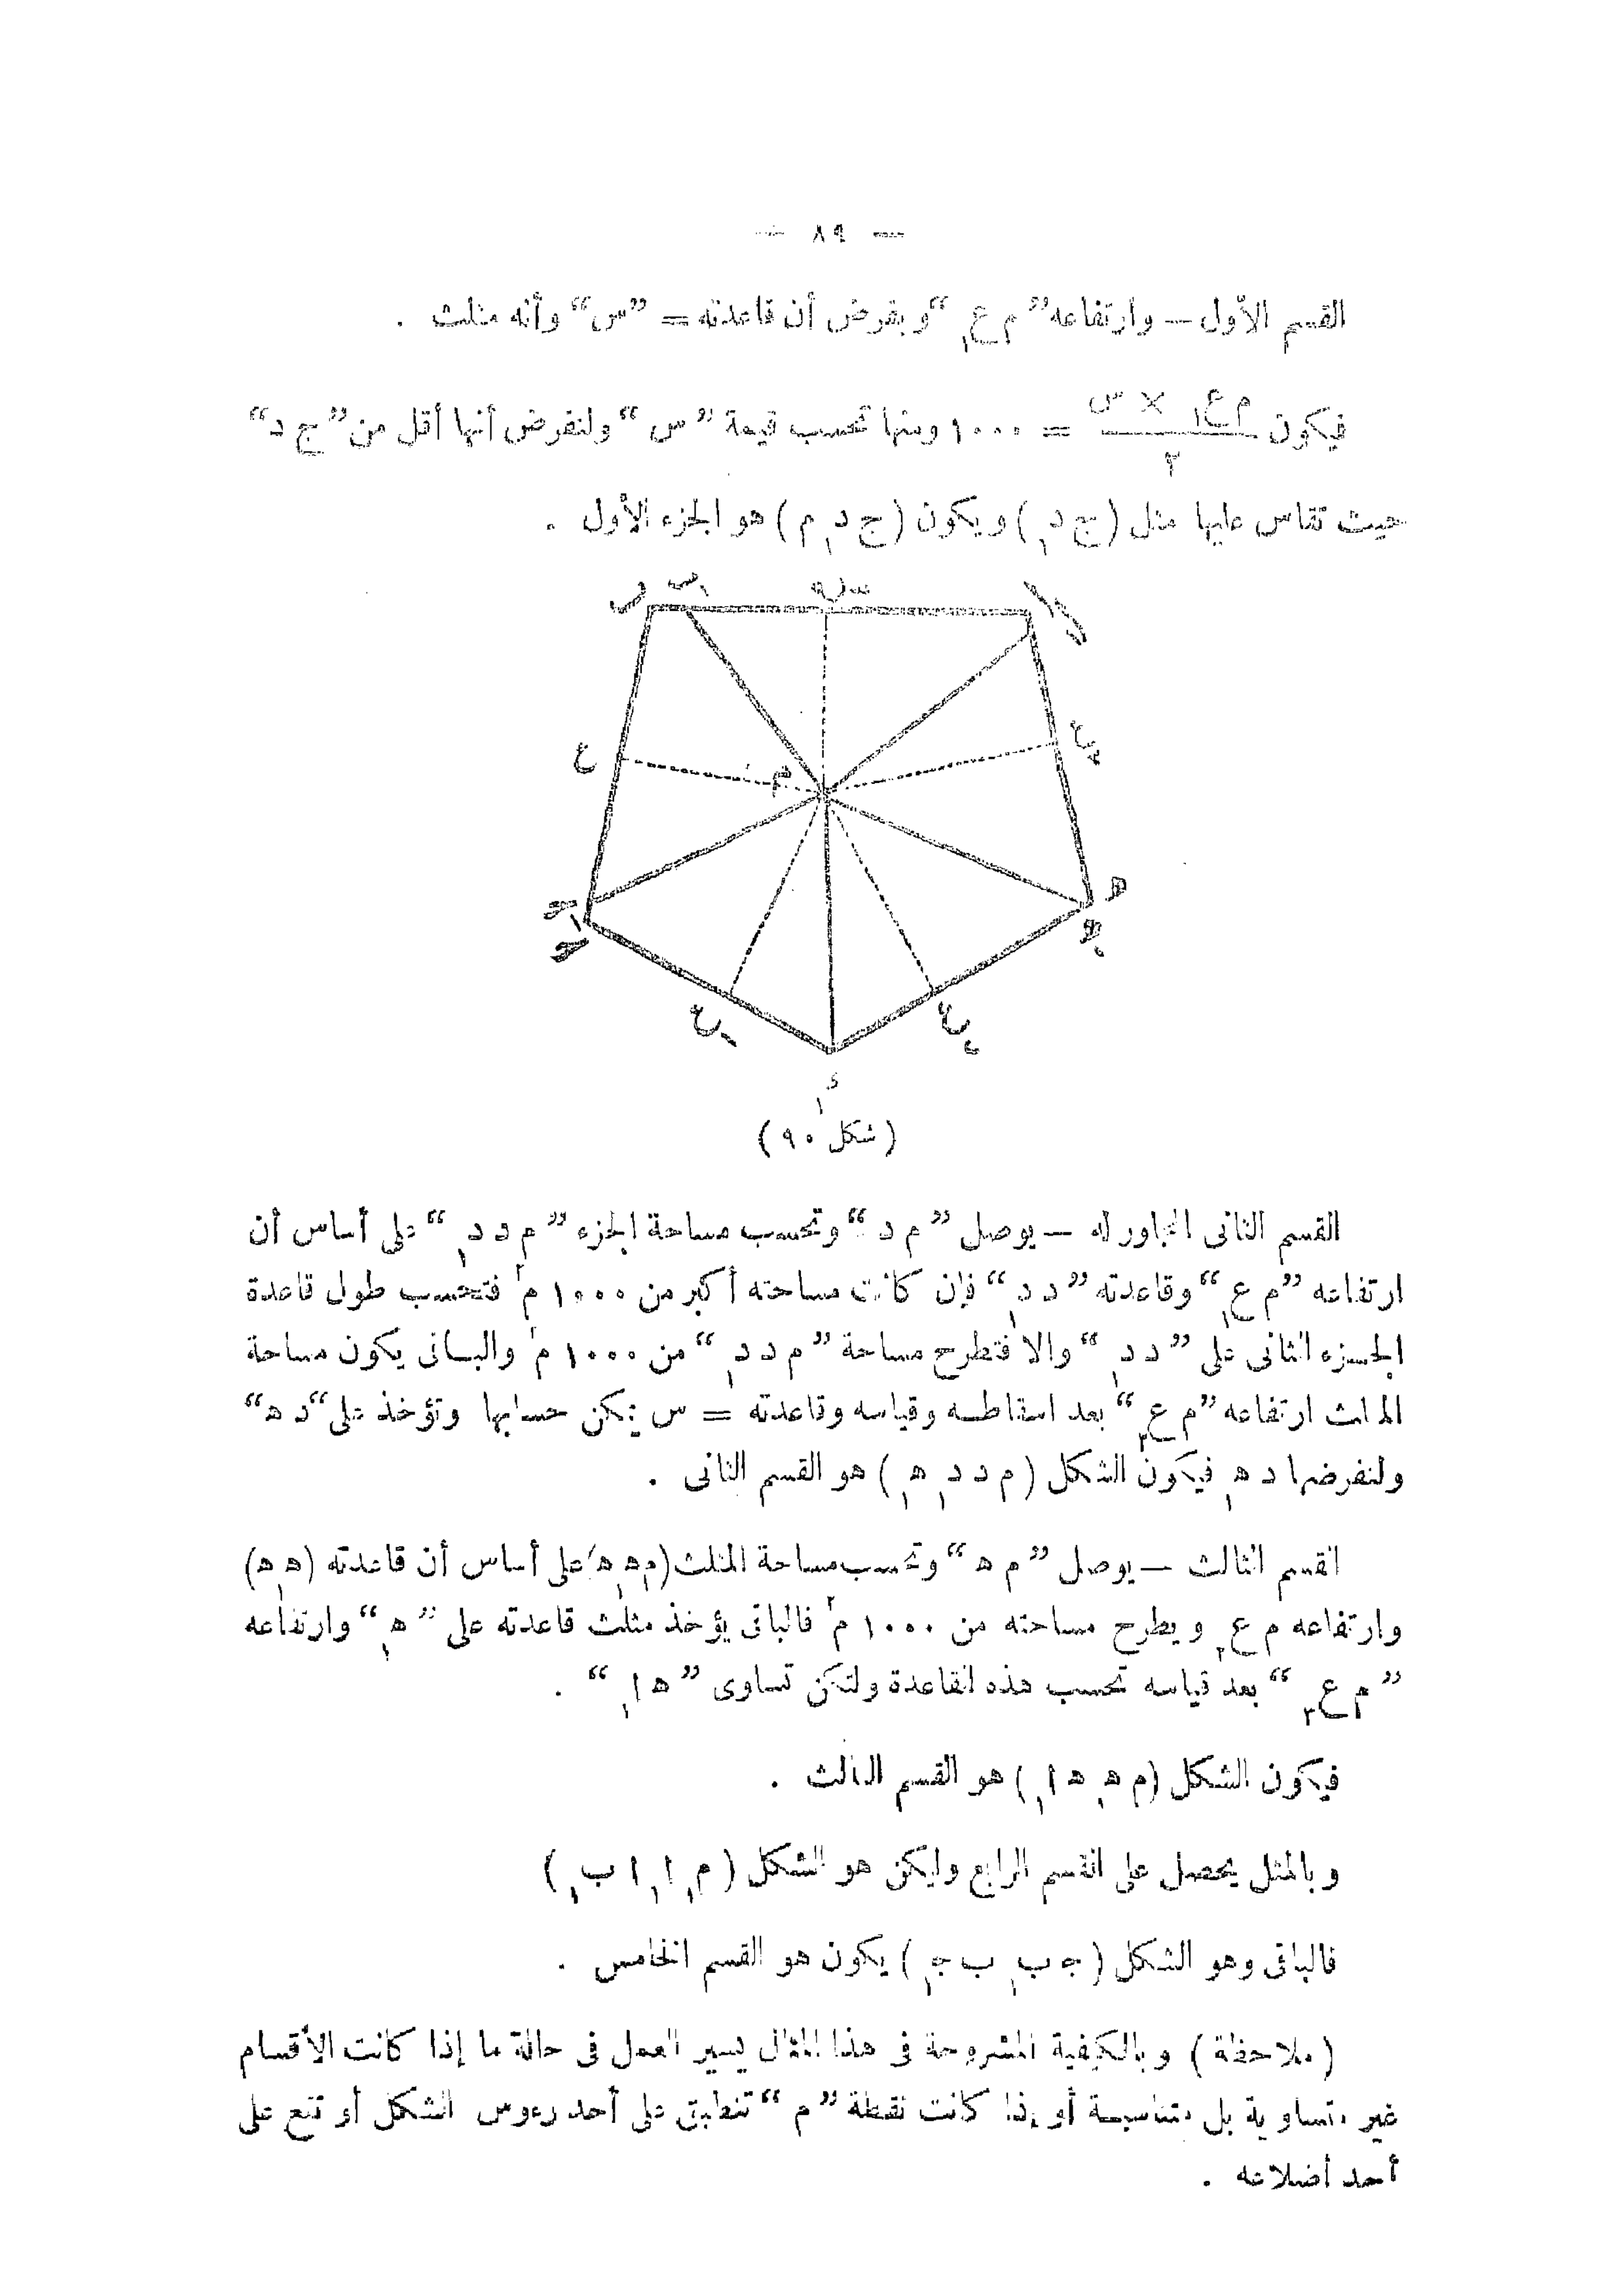 — ٨٩ —
القسم الأول — وارتفاعه ”م ع١“ وبفرض أن قاعدته = ”س“ وأنه مثلث .
فيكون (م ع١ × س) / ٢ = ١٠٠٠ ومنها تحسب قيمة ”س“ ولنفرض أنها أقل من ”ج د“
حيث تقاس عليها مثل (ج د١) ويكون (ج د١ م) هو الجزء الأول .
ع
م
هـ
ج
ج١
د١
(شكل ٩٠)
القسم الثانى المجاور له — يوصل ”م د“ وتحسب مساحة الجزء ”م د د١“ على أساس أن
ارتفاعه ”م ع١“ وقاعدته ”د د١“ فإن كانت مساحته أكبر من ١٠٠٠ م٢ فتحسب طول قاعدة
الجزء الثانى على ”د د١“ والا فتطرح مساحة ”م د د١“ من ١٠٠٠ م٢ والباقى يكون مساحة
المثلث ارتفاعه ”م ع٢“ بعد اسقاطه وقياسه وقاعدته = س يمكن حسابها وتؤخذ على ”د ه“
ولنفرضها د ه١ فيكون الشكل (م د د١ ه١) هو القسم الثانى .
القسم الثالث — يوصل ”م ه“ وتحسب مساحة المثلث (م ه ه١) على أساس أن قاعدته (ه ه١)
وارتفاعه م ع٢ ويطرح مساحته من ١٠٠٠ م٢ فالباقى يؤخذ مثلث قاعدته على ”ه١“ وارتفاعه
”م ع٣“ بعد قياسه تحسب هذه القاعدة ولتكن تساوى ”ه ا١“ .
فيكون الشكل (م ه١ ه ا١) هو القسم الثالث .
وبالمثل يحصل على القسم الرابع وليكن هو الشكل (م١ ا١ ا ب١)
فالباقى وهو الشكل (ج ب١ ب ج١) يكون هو القسم الخامس .
(ملاحظة) وبالكيفية المشروحة فى هذا المثال يسير العمل فى حالة ما إذا كانت الأقسام
غير متساوية بل متناسبة أو إذا كانت نقطة ”م“ تنطبق على أحد رءوس الشكل أو تقع على
أحد أضلاعه .